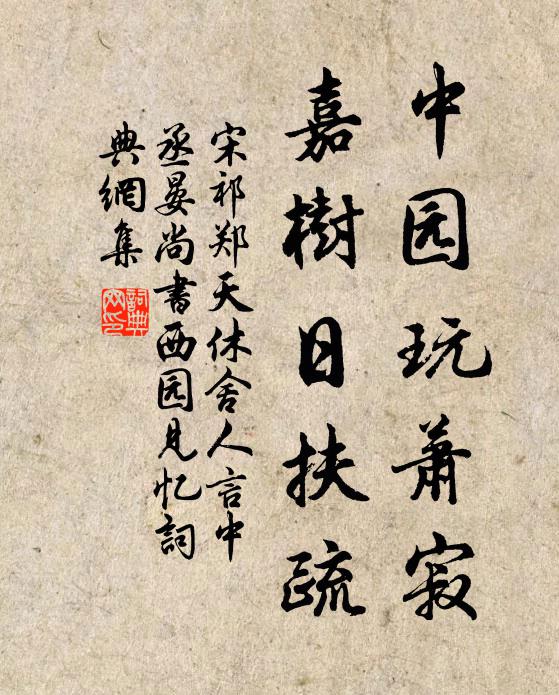 中园玩萧寂
嘉樹日扶疏
宋祁郑天休舍人言中
丞晏尚書西园見忆詞
典網集
詞典
网印